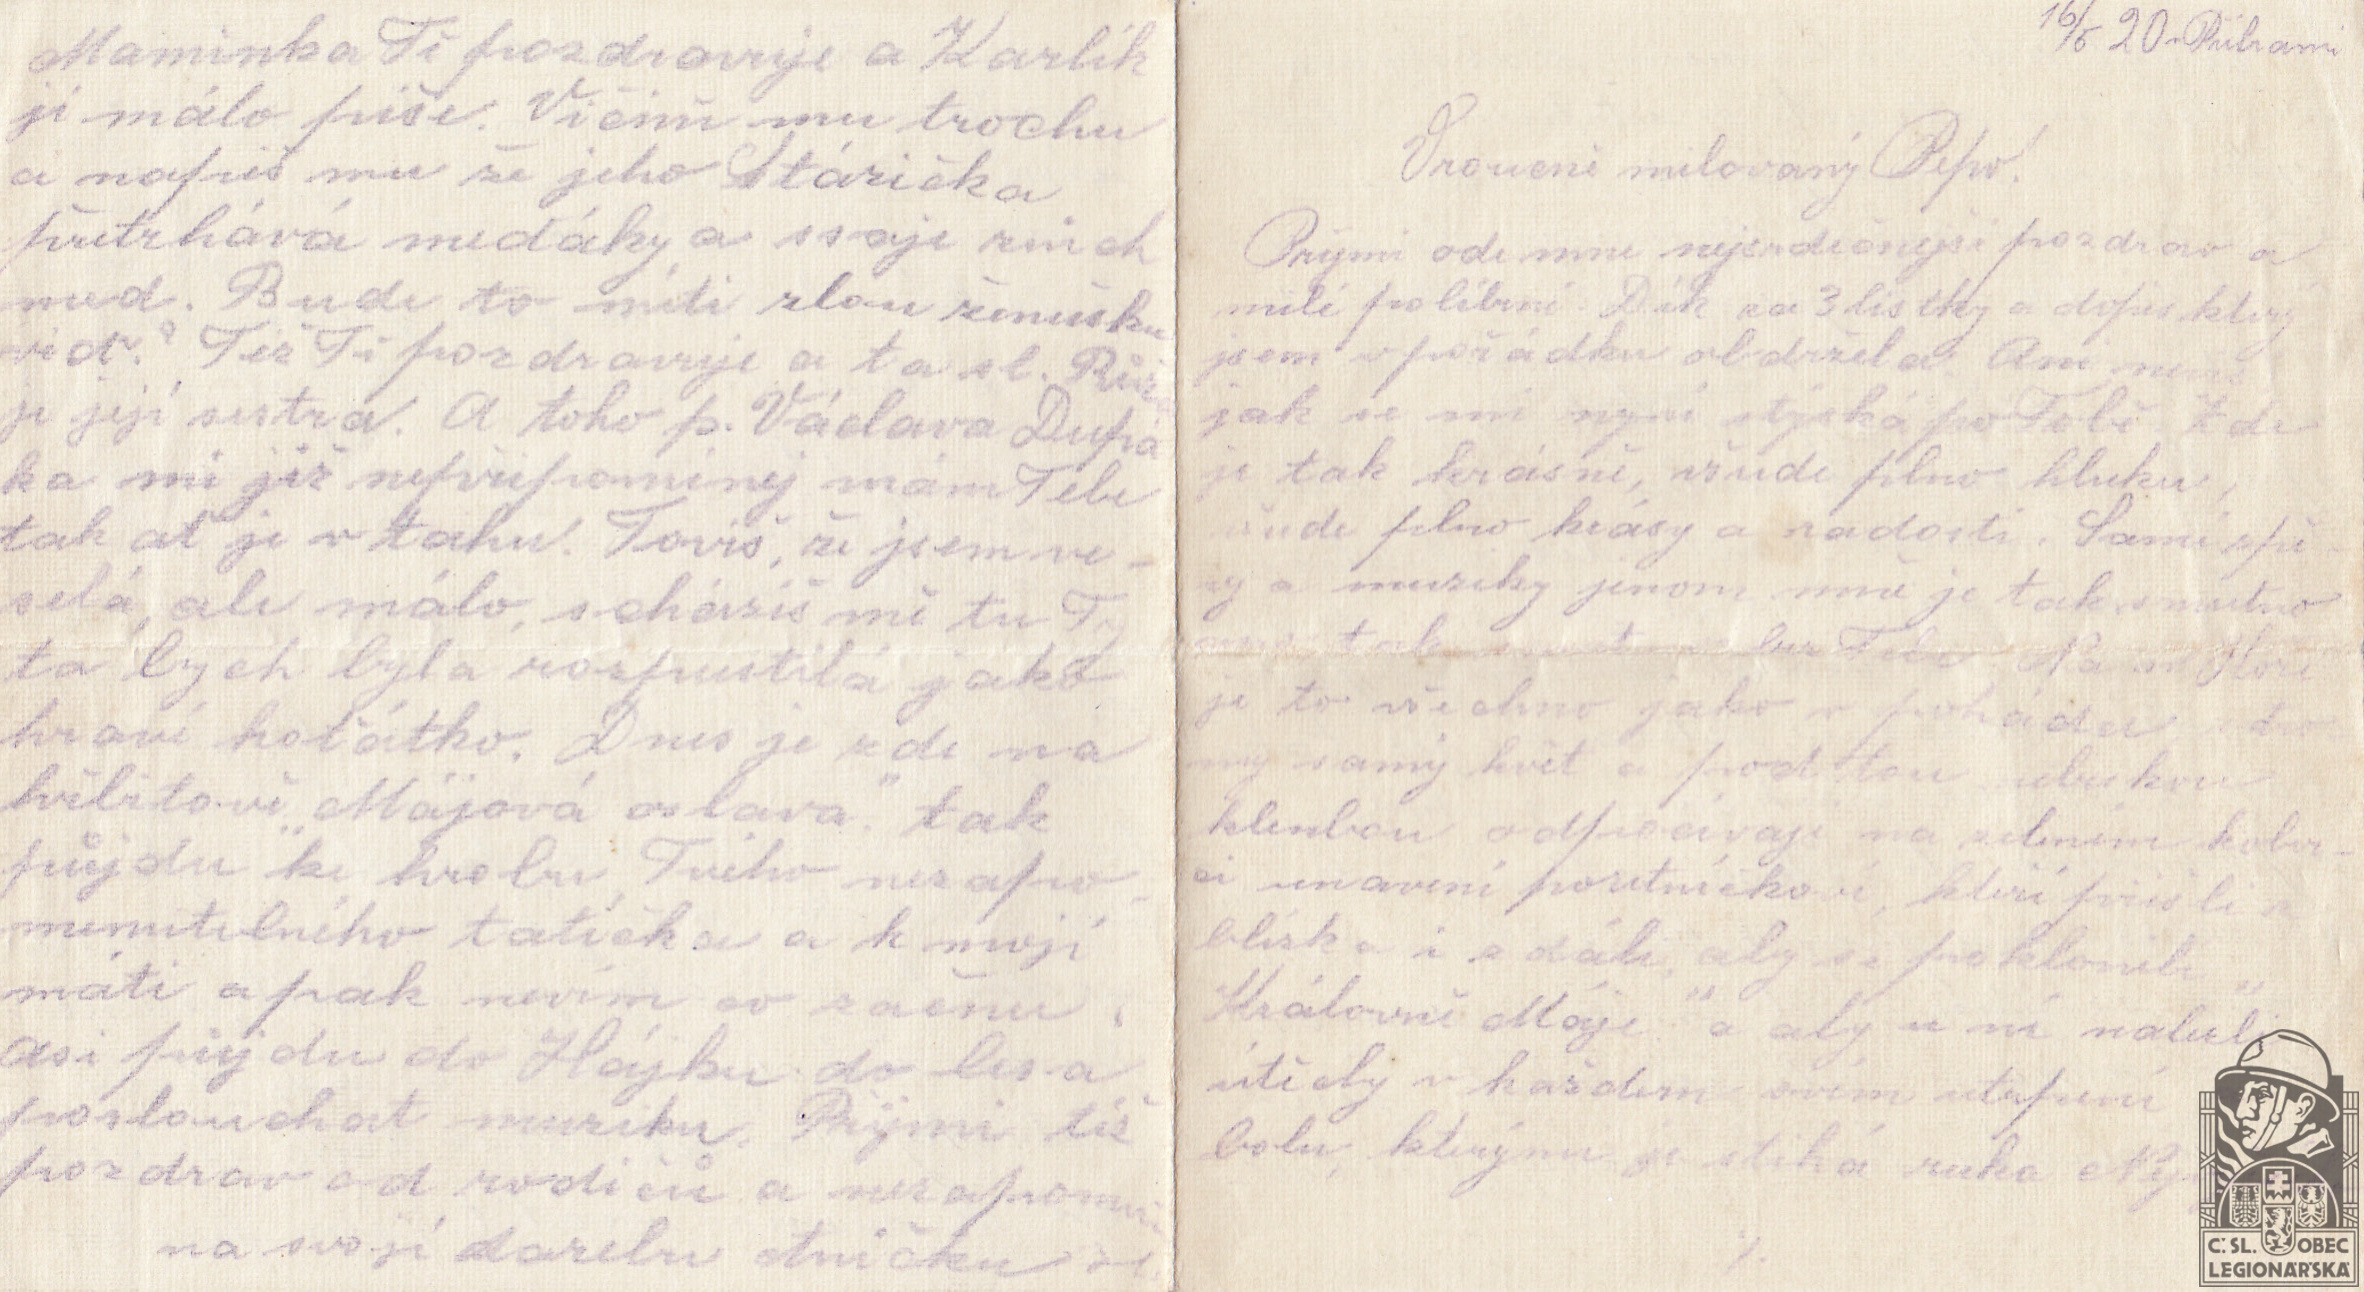 16/5 20. Příbrami
Vroucně milovaný Pépo!
Prijmi odemne nejsrdečnejší pozdrav a
milé políbení. Dík za 3 lístky a dopis který
jsem v pořádku obdržela. Ani nevíš
jak se mi nyní stýská po Tobě. Zde
je tak krásně, všude plno hluku,
všude plno krásy a radosti. Samé zpě-
vy a muziky jenom mně je tak smutno
tak bez Tebe. Na sv. Hoře
je to všechno jako v pohádce, stro
my samý květ a pod tou
klenbou odpočívají na zeleném kober-
ci unavení poutníčkové, kteří přišli z
blízka i z dáli, aby se poklonili „
Královně Máje" a aby u ní nalezli
útěchy v každém svém utrpení
bolu, kterým je stíhá ruka
/.
Maminka Tě pozdravuje a Karlík
jí málo píše. Vičiň mu trochu
a napiš mu že jeho Stárička
přetrhává meďáky a ssaje z nich
med. Bude to míti zlou ženušku
viď.? Též Tě pozdravuje a ta sl. Růž
je její sestra. A toho p. Václava Dupá
ka mi již nepřipomínej mám Tebe
tak ať je v tahu. Toviš, že jsem ve-
selá, ale málo, scházíš mě tu Ty
ta bych byla rozpustilá jako
hravé koťátko. Dnes je zde na
hřbitově „Májová oslava" tak
půjdu ke hrobu Tvého nezapo-
menutelného tatíčka a k mojí
máti a pak nevím co začnu,
asi půjdu do Hájku do lesa
poslouchat muziku. Prijmi též
pozdrav od rodičů a nezapomeň
na svojí darebu Aničku
Č. SL. OBEC
LEGIONÁŘSKÁ